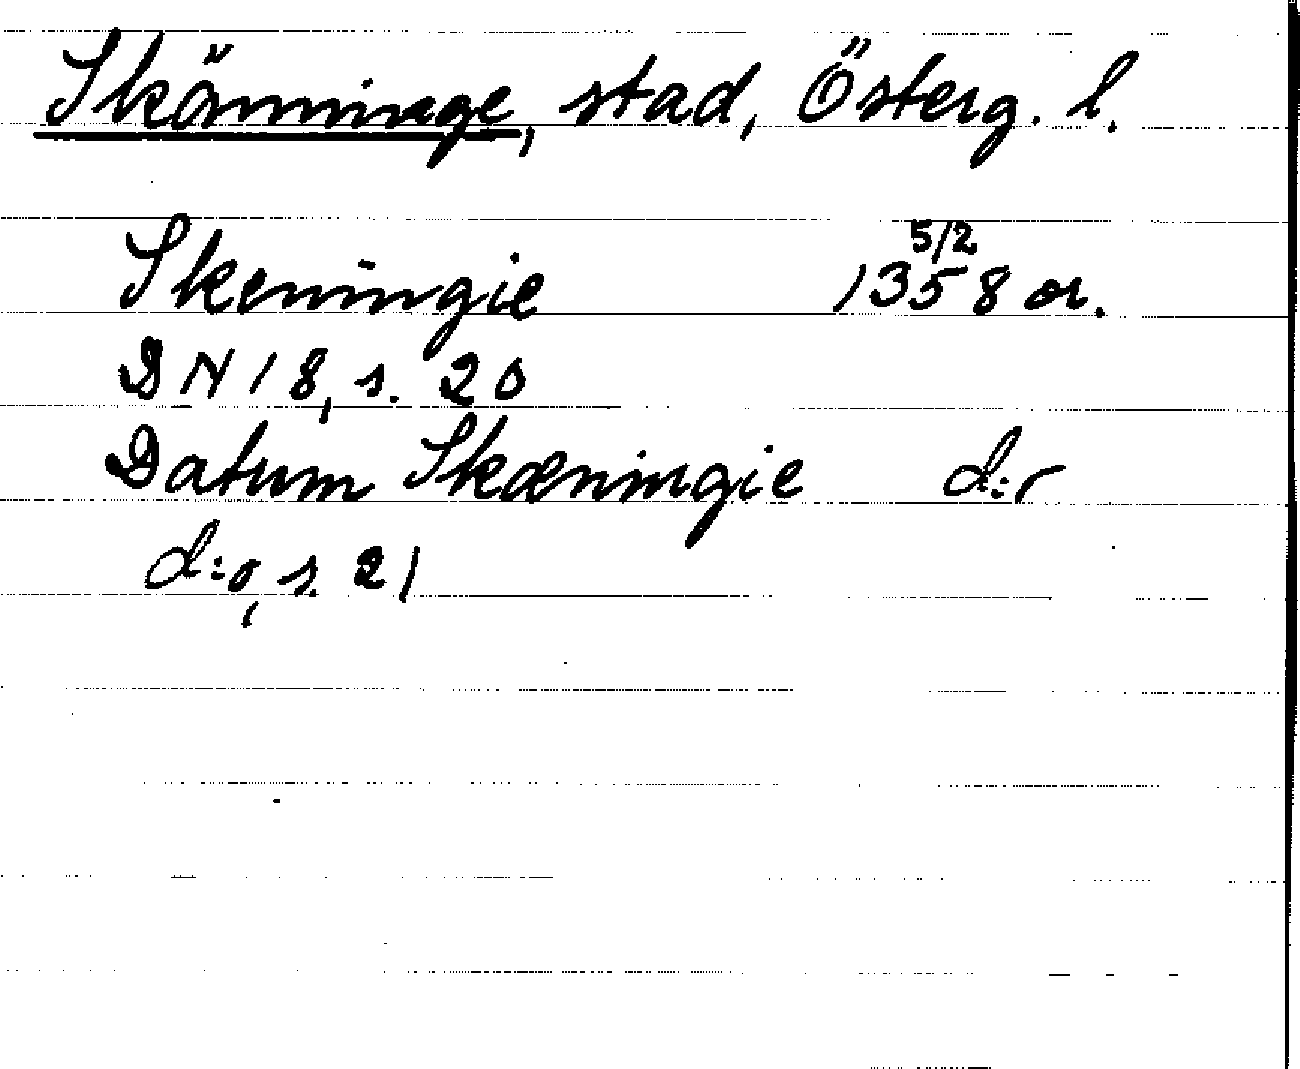 Skänninge, stad, Österg. l.
Skeningie 1358 5/2 or.
DN 18, s. 20
Datum Skæningie d:o
d:o, s. 21